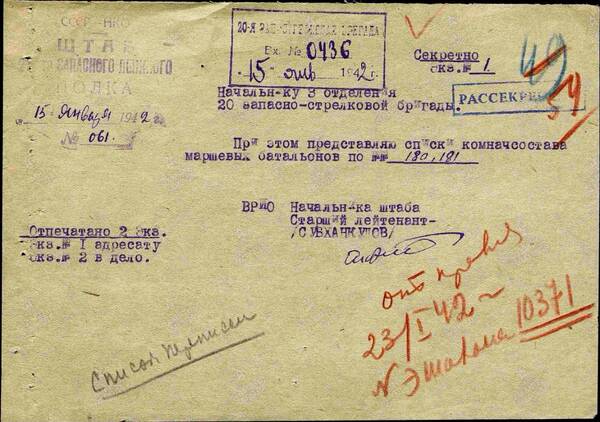 СССР-НКО
ШТАБ
ЗАПАСНОГО ЛЫЖНОГО
ПОЛКА
15 января 1942 г
№ 061.
20-я ЗАП. СТРЕЛКОВАЯ БРИГАДА
Вх. № 0436
"15" янв 1942 г.
Секретно
экз.№ 1.
49
54
РАССЕКРЕ
Начальнику 3 отделения
20 запасно-стрелковой бригады.
При этом представляю списки комначсостава
маршевых батальонов по №№ 180, 181
ВРИО Начальника штаба
Старший лейтенант-
Отпечатано 2 экз.
экз.№ 1 адресату
экз.№ 2 в дело.
23/I 42 г
N Эшалона 10371
Список